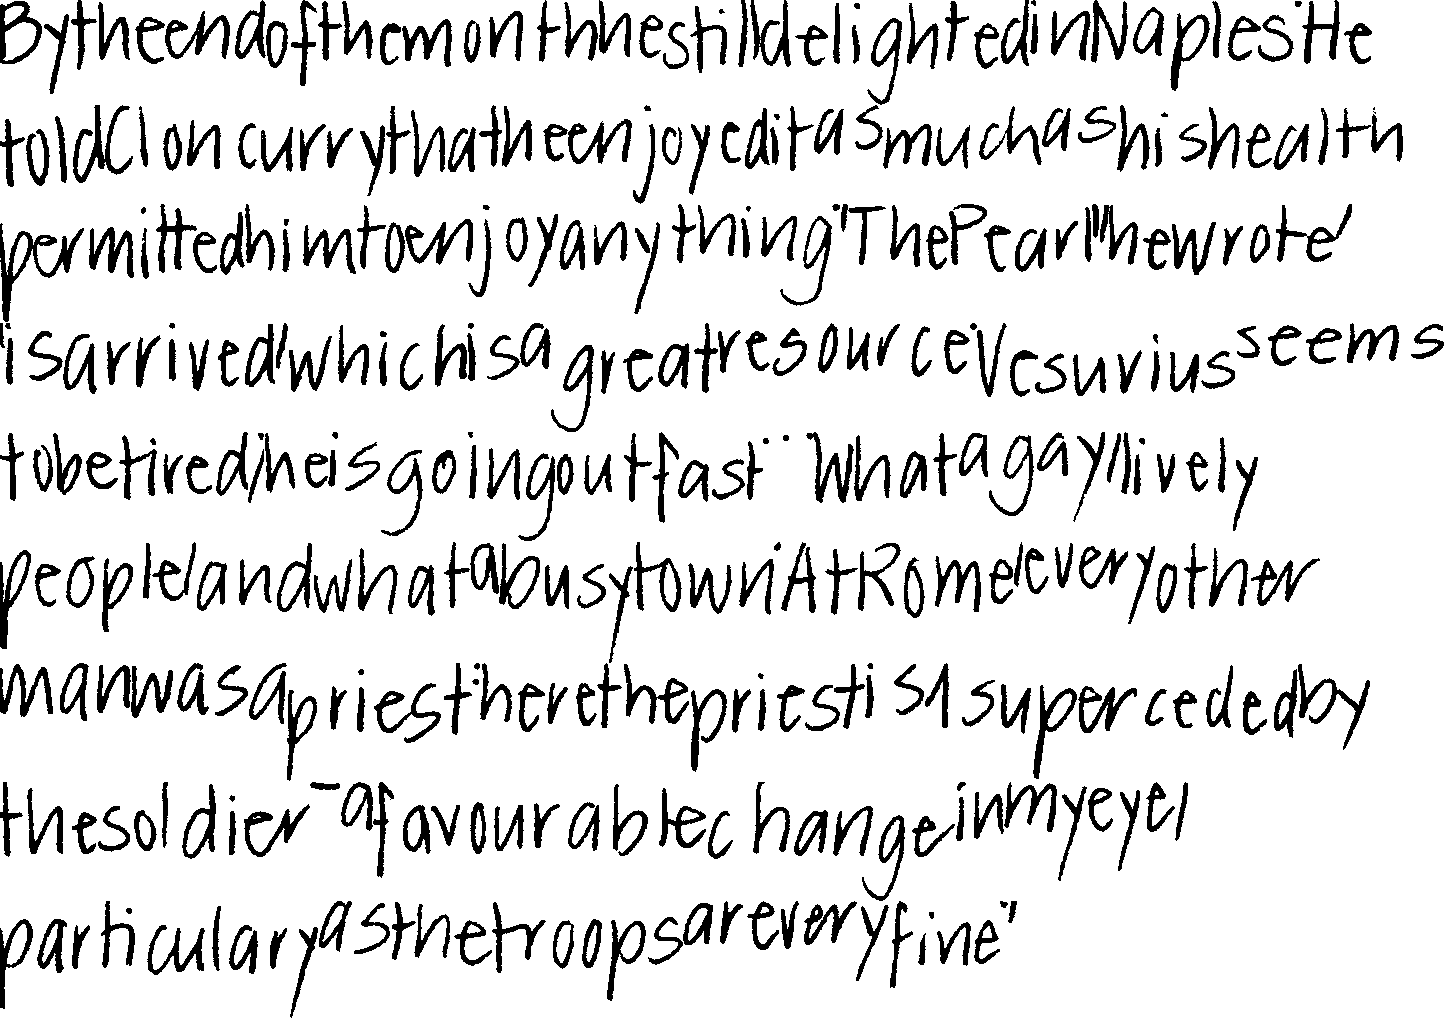 By the end of the month he still delighted in Naples. He
told Cloncurry that he enjoyed it as much as his health
permitted him to enjoy anything. "The Pearl," he wrote,
"is arrived, which is a great resource. Vesuvius seems
to be tired, he is going out fast ... What a gay, lively
people, and what a busy town. At Rome, every other
man was a priest; here the priest is superceded by
the soldier - a favourable change in my eye,
particulary as the troops are very fine."